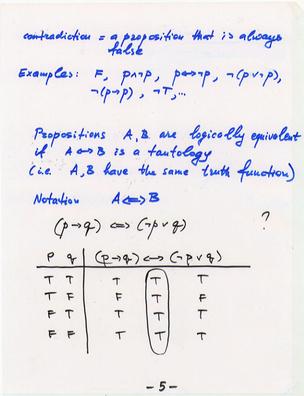 contradiction = a proposition that is always
false
Examples: F, p∧¬p, p↔¬p, ¬(p∨¬p),
¬(p→p), ¬T,...
Propositions A,B are logically equivalent
if A↔B is a tautology
(i.e. A,B have the same truth function)
Notation A⇔B
(p→q) ⇔ (¬p∨q) ?
P q (p→q) ↔ (¬p∨q)
T T T T T
T F F T F
F T T T T
F F T T T
- 5 -